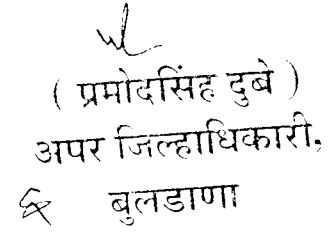 ( प्रमोदसिंह दुबे )
अपर जिल्हाधिकारी,
बुलडाणा